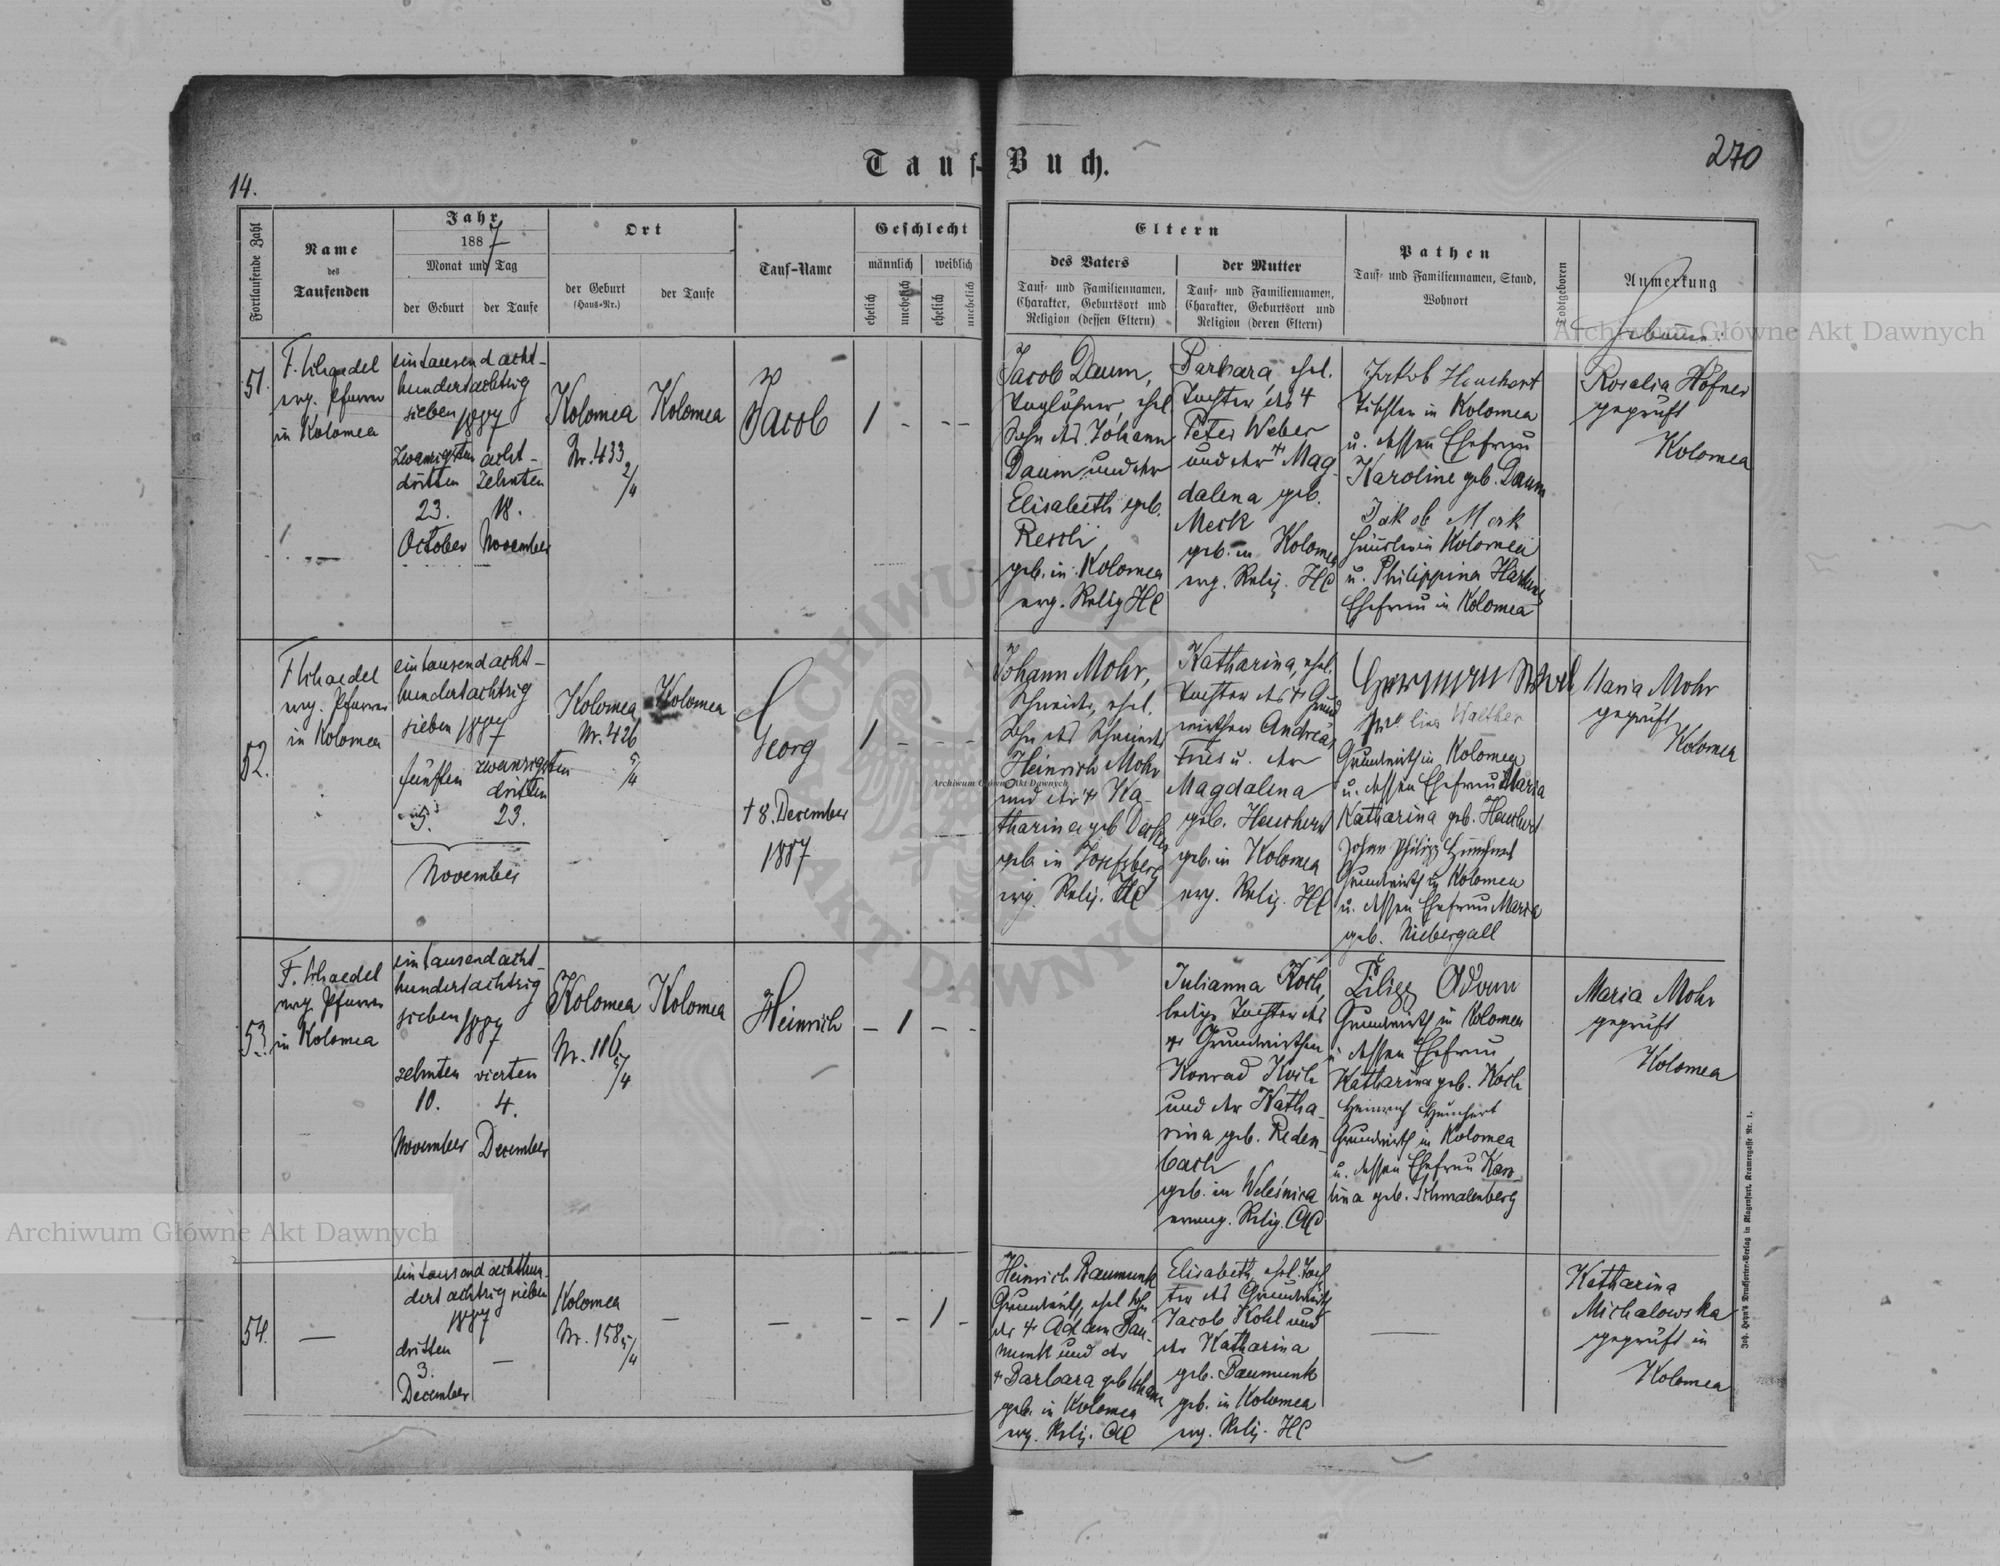 14.
Tauf-Buch.
270
Fortlaufende Zahl
Name
des
Taufenden
Jahr
1887
Monat und Tag
der Geburt
der Taufe
Ort
der Geburt
(Haus-Nr.)
der Taufe
Tauf-Name
Geschlecht
männlich
weiblich
ehelich
unehelich
ehelich
unehelich
Eltern
des Vaters
Tauf- und Familiennamen,
Charakter, Geburtsort und
Religion (dessen Eltern)
der Mutter
Tauf- und Familiennamen,
Charakter, Geburtsort und
Religion (deren Eltern)
Pathen
Tauf- und Familiennamen, Stand,
Wohnort
Todtgeboren
Anmerkung
Hebamme.
51.
F. Schaedel
evg. Pfarrer
in Kolomea
eintausend acht-
hundertachtzig
sieben 1887
zwanzigsten
dritten
23.
October
acht-
zehnten
18.
November
Kolomea
Nr. 433
2/4
Kolomea
Jacob
1 - - -
Jacob Daum,
Taglöhner, ehel.
Sohn des Johann
Daum und der
Elisabeth geb.
geb. in Kolomea
evg. Relig HC
Barbara, ehel.
Tochter des †
Peter Weber
und der † Mag-
dalena geb.
Merk
geb. in Kolomea
evg. Relig. HC
Jakob Heuchert
Tischler in Kolomea
u. dessen Ehefrau
Karoline geb. Daum
Jakob Merk
Häusler in Kolomea
u. Philippina
Ehefrau in Kolomea
Rosalia Höfner
geprüft
Kolomea
52.
F. Schaedel
evg. Pfarrer
in Kolomea
eintausend acht-
hundertachtzig
sieben 1887
fünften
5.
zwanzigsten
dritten
23.
November
Kolomea
Nr. 426
5/4
Kolomea
Georg
† 8. December
1887
1 - - -
Johann Mohr,
Schmied, ehel.
Sohn des Schmieds
Heinrich Mohr
und der † Ka-
tharina geb
geb. in Josefsberg
evg. Relig. HC
Katharina, ehel.
Tochter des † Grund
wirthen Andreas
Fries u. der
Magdalena
geb. Heuchert
geb. in Kolomea
evg. Relig. HC
Walther
Grundwirth in Kolomea
u. dessen Ehefrau Maria
Katharina geb. Heuchert
Johann Philipp Heuchert
Grundwirth in Kolomea
u. dessen Ehefrau Maria
geb. Niebergall
Maria Mohr
geprüft
Kolomea
53.
F. Schaedel
evg. Pfarrer
in Kolomea
eintausend acht-
hundertachtzig
sieben 1887
zehnten
10.
November
vierten
4.
December
Kolomea
Nr. 116
5/4
Kolomea
Heinrich
- 1 - -
Julianna Koch,
ledige Tochter des
† Grundwirthen
Konrad Koch
und der Katha-
rina geb. Reden-
bach
geb. in Weleśnica
evang. Relig. AC
Filipp Adam
Grundwirth in Kolomea
u. dessen Ehefrau
Katharina geb. Koch
Heinrich Heuchert
Grundwirth in Kolomea
u. dessen Ehefrau Karo-
lina geb. Schmalenberg
Maria Mohr
geprüft
Kolomea
54.
—
eintausend achthun-
dert achtzig sieben
1887
dritten
3.
December
—
Kolomea
Nr. 158
5/4
—
—
- - 1 -
Heinrich Baumunk
Grundwirth, ehel. Sohn
des † Adam Bau-
munk und der
† Barbara geb
geb. in Kolomea
evg. Relig. AC
Elisabeth, ehel. Toch
ter des Grundwirths
Jacob Kohl und
der Katharina
geb. Baumunk
geb. in Kolomea
evg. Relig. HC
—
Katharina
Michalowska
geprüft in
Kolomea
Joh. Heyn's Drucksorten-Verlag in Klagenfurt, Kramergasse Nr. 1.
Archiwum Główne Akt Dawnych
Archiwum Główne Akt Dawnych
Archiwum Główne Akt Dawnych
ARCHIWUM
AKT DAWNYCH